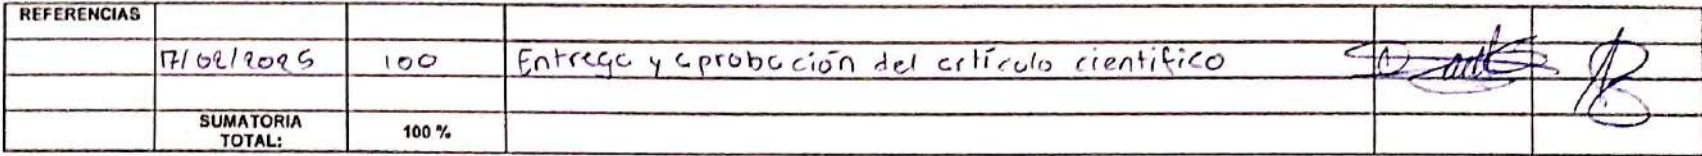 REFERENCIAS
17/02/2025 100 Entrega y aprobación del artículo cientifico
SUMATORIA
TOTAL: 100 %